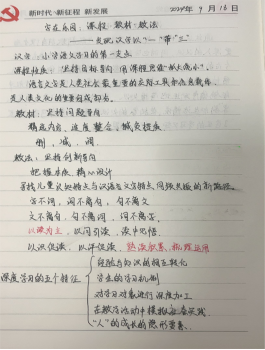 新时代·新征程 新发展
2024年9月18日
课程 教材 教法
汉字:小学语文学习的第一要点
坚持目标导向 用课程思维"统大概小"。
语言文字是人类社会最重要的交际工具和信息载体,
是人类文化的重要组成部分。
教材:坚持问题导向
精选内容、适度整合、减负提质
删、减、调
教法:坚持创新导向
把握本质、精心设计
寻找儿童认知特点与汉语言文字特点同频共振的新路径。
字不离词,词不离句,句不离文
文不离句,句不离词,词不离字。
以读为主,以问引读,读中见悟
以识促读、以评促读、熟读积累、梳理运用
深度学习的五个特征
经验与知识的相互转化
学生的学习机制
对学习对象进行深度加工
在教学活动中模拟社会实践
"人"的成长的隐形要素.